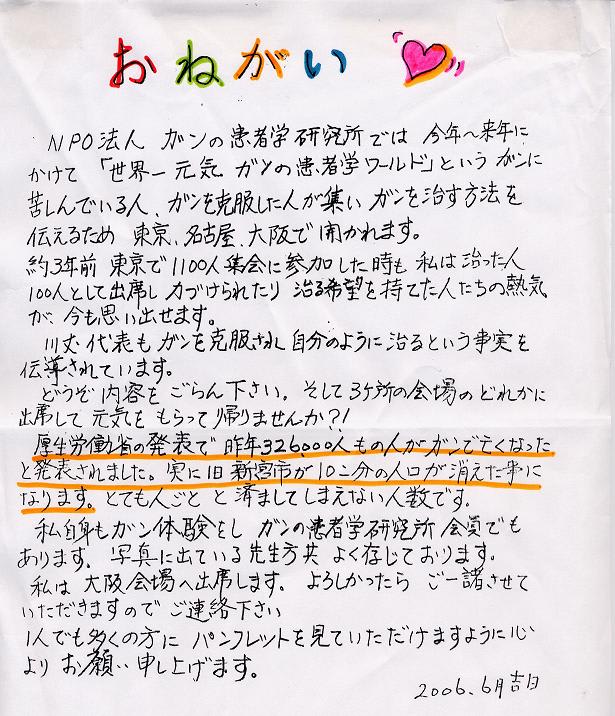 おねがい
NPO法人 ガンの患者学研究所では 今年〜来年に
かけて 「世界一元気 ガンの患者学ワールド」という ガンに
苦しんでいる人、ガンを克服した人が集い ガンを治す方法を
伝えるため 東京、名古屋、大阪で開かれます。
約3年前 東京で1100人集会に参加した時も 私は治った人
100人として出席し 力づけられたり 治る希望を持てた人たちの熱気
が、今も思い出せます。
川丈代表も ガンを克服され 自分のように治るという事実を
伝導されています。
どうぞ内容を ごらん下さい。そして3ヶ所の会場のどれかに
出席して 元気を もらって帰りませんか?!
厚生労働省の発表で 昨年326,000人もの人がガンで亡くなった
と発表されました。実に旧新宮市が10こ分の人口が消えた事に
なります。とても人ごと と済ましてしまえない人数です。
私自身もガン体験をし ガンの患者学研究所会員でも
あります。写真に出ている先生方共 よく存じております。
私は 大阪会場へ出席します。よろしかったら ご一諸させて
いただきますので ご連絡下さい
1人でも多くの方に パンフレットを見ていただけますように心
より お願い申し上げます。
2006.6月吉日